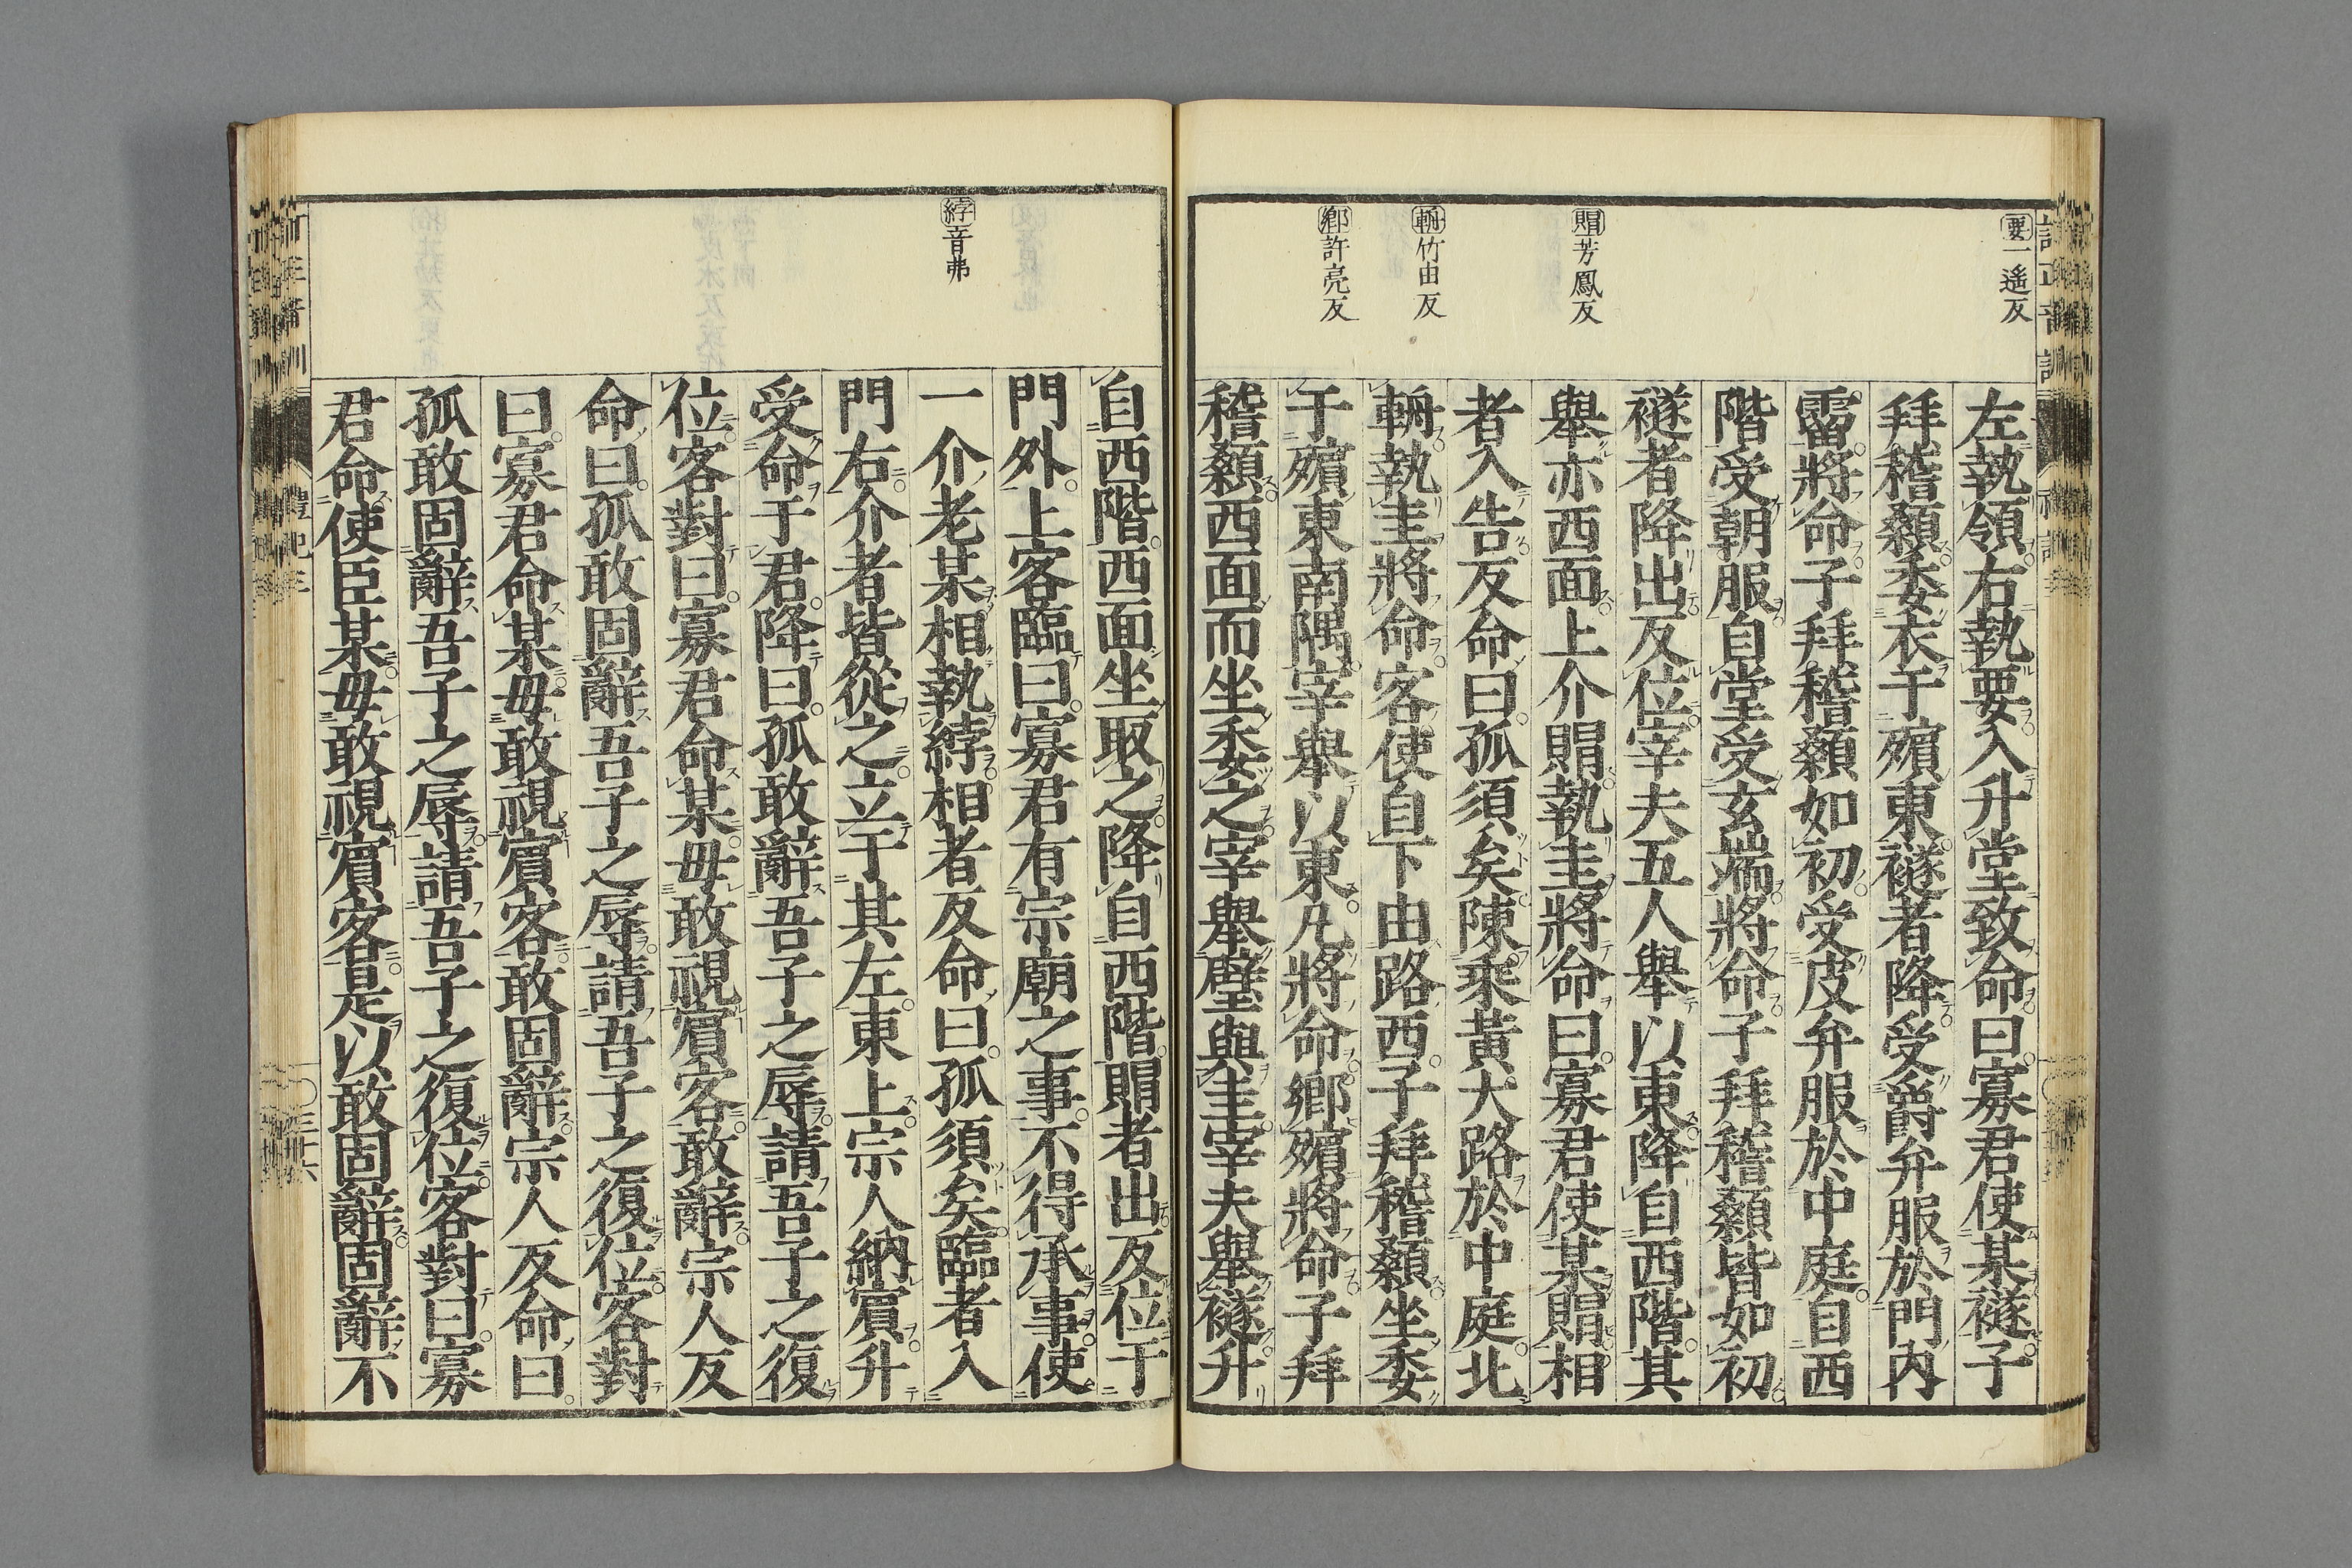 要一遙反
賵芳鳳反
輈竹由反
鄉許亮反
左執領右執要入升堂致命曰寡君使某襚子
拜稽顙委衣于殯東襚者降受爵弁服於門內
霤將命子拜稽顙如初受皮弁服於中庭自西
階受朝服自堂受玄端將命子拜稽顙皆如初
襚者降出反位宰夫五人舉以東降自西階其
舉亦西面上介賵執圭將命曰寡君使某賵相
者入告反命曰孤須矣陳乘黃大路於中庭北
輈執圭將命客使自下由路西子拜稽顙坐委
于殯東南隅宰舉以東凡將命鄉殯將命子拜
稽顙西面而坐委之宰舉璧與圭宰夫舉襚升
綍音弗
自西階西面坐取之降自西階賵者出反位于
門外上客臨曰寡君有宗廟之事不得承事使
一介老某相執綍相者反命曰孤須矣臨者入
門右介者皆從之立于其左東上宗人納賓升
受命于君降曰孤敢辭吾子之辱請吾子之復
位客對曰寡君命某毋敢視賓客敢辭宗人反
命曰孤敢固辭吾子之辱請吾子之復位客對
曰寡君命某毋敢視賓客敢固辭宗人反命曰
孤敢固辭吾子之辱請吾子之復位客對曰寡
君命使臣某毋敢視賓客是以敢固辭固辭不